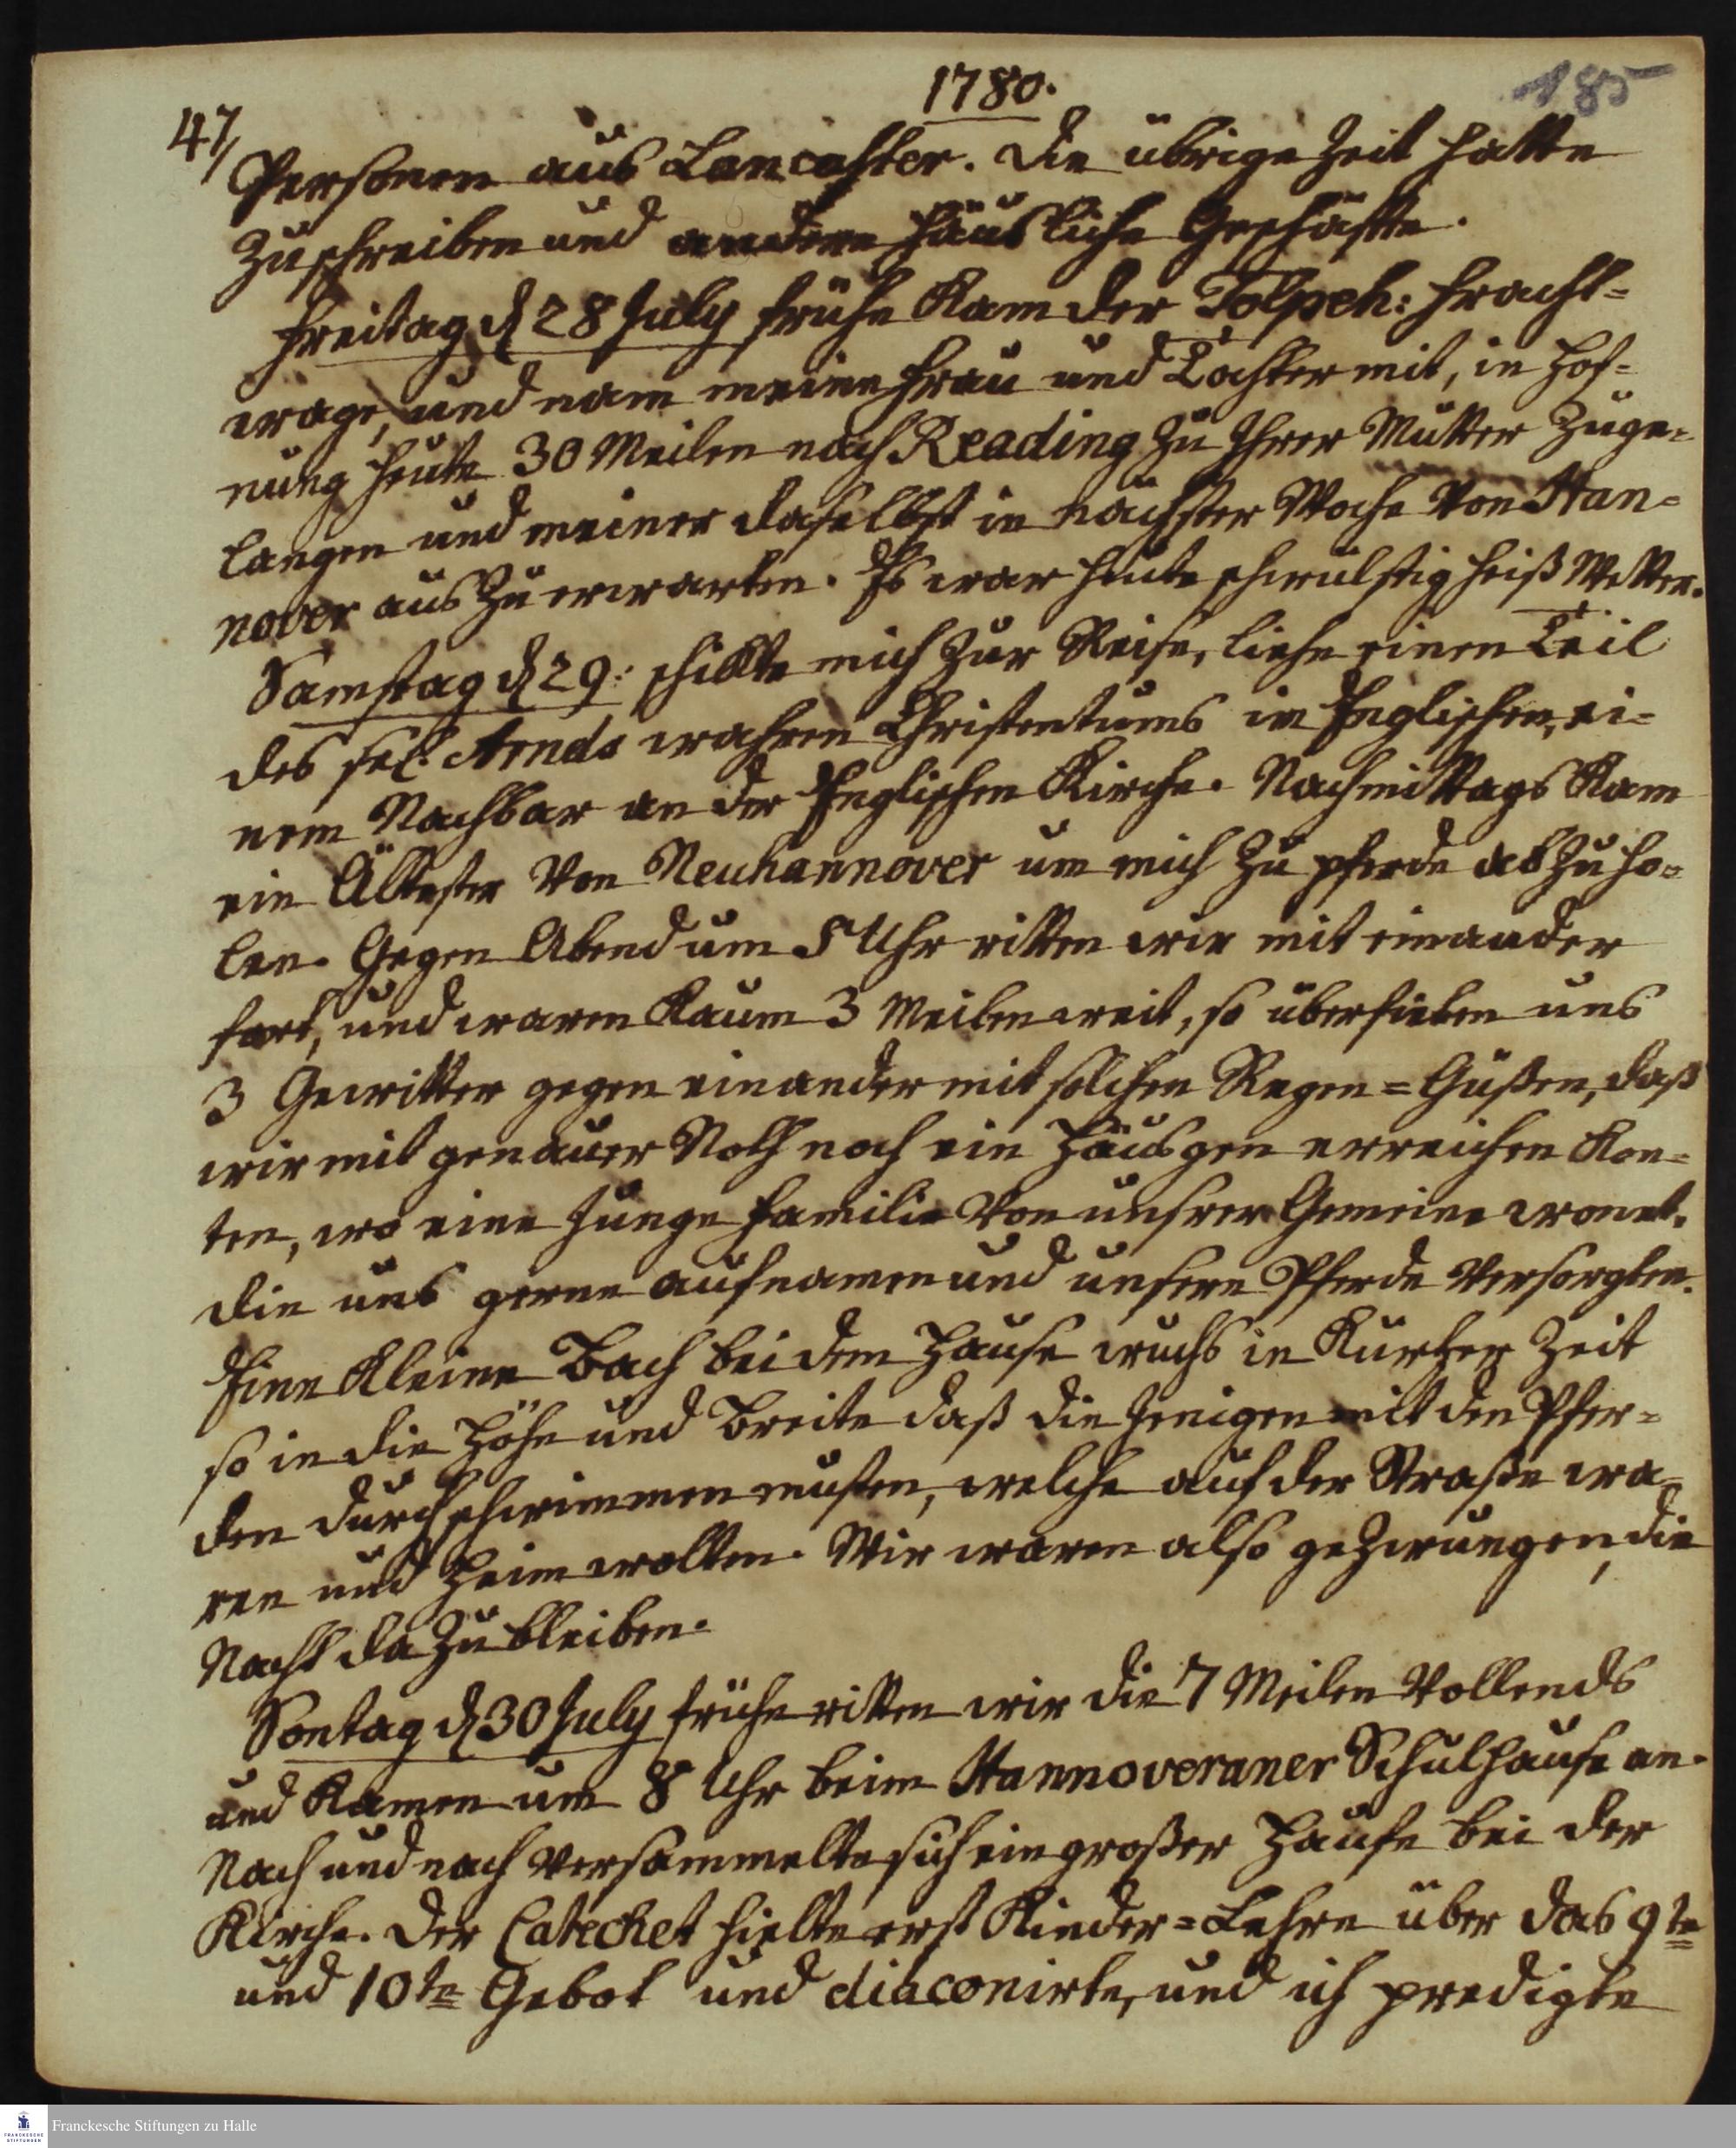 1780.
185
47,
Personen aus Lancaster. Die übrige Zeit hatte
zu schreiben und andere häusliche Geschäfte.
Freitag d 28 July frühe kam der Tolpeh: Fracht-
wage, und nam meine Frau und Tochter mit, in Hof-
nung heute 30 Meilen nach Reading zu Ihrer Mutter zuge-
langen und meiner daselbst in nächster Woche von Han-
nover aus zu erwarten. Es war heute schwülstig heiß Wetter.
Samstag d 29: schikte mich zur Reise, liehe einen Teil
des sel. Arnds wahren Christentums im Englischen, ei-
nem Nachbar an der Englischen Kirche. Nachmittags kam
ein Ältester von Neuhannover um mich zu pferde abzuho-
len. Gegen Abend um 5 Uhr ritten wir mit einander
fort, und waren kaum 3 Meilen weit, so überfielen uns
3 Gewitter gegen einander mit solchen Regen=Güßen, daß
wir mit genauer Noth noch ein Häusgen erreichen kon-
ten, wo eine junge Familie von unsrer Gemeine wonet,
die uns gerne aufnamen und unsere Pferde versorgten.
Eine kleine Bach bei dem Hause wuchs in kurtzer Zeit
so in die Höhe und Breite daß diejenigen mit den Pfer-
den durchschwimmen musten, welche auf der Straße wa-
ren und heim wolten. Wir waren also gezwungen, die
Nacht da zu bleiben.
Sontag d 30 July frühe ritten wir die 7 Meilen vollends
und kamen um 8 Uhr beim Hannoveraner Schulhause an.
Nach und nach versammelte sich ein großer Haufe bei der
Kirche. Der Catechet hielte erst Kinder=Lehre über das 9te
und 10te Gebot und diaconirte, und ich predigte
Franckesche Stiftungen zu Halle
FRANCKESCHE
STIFTUNGEN